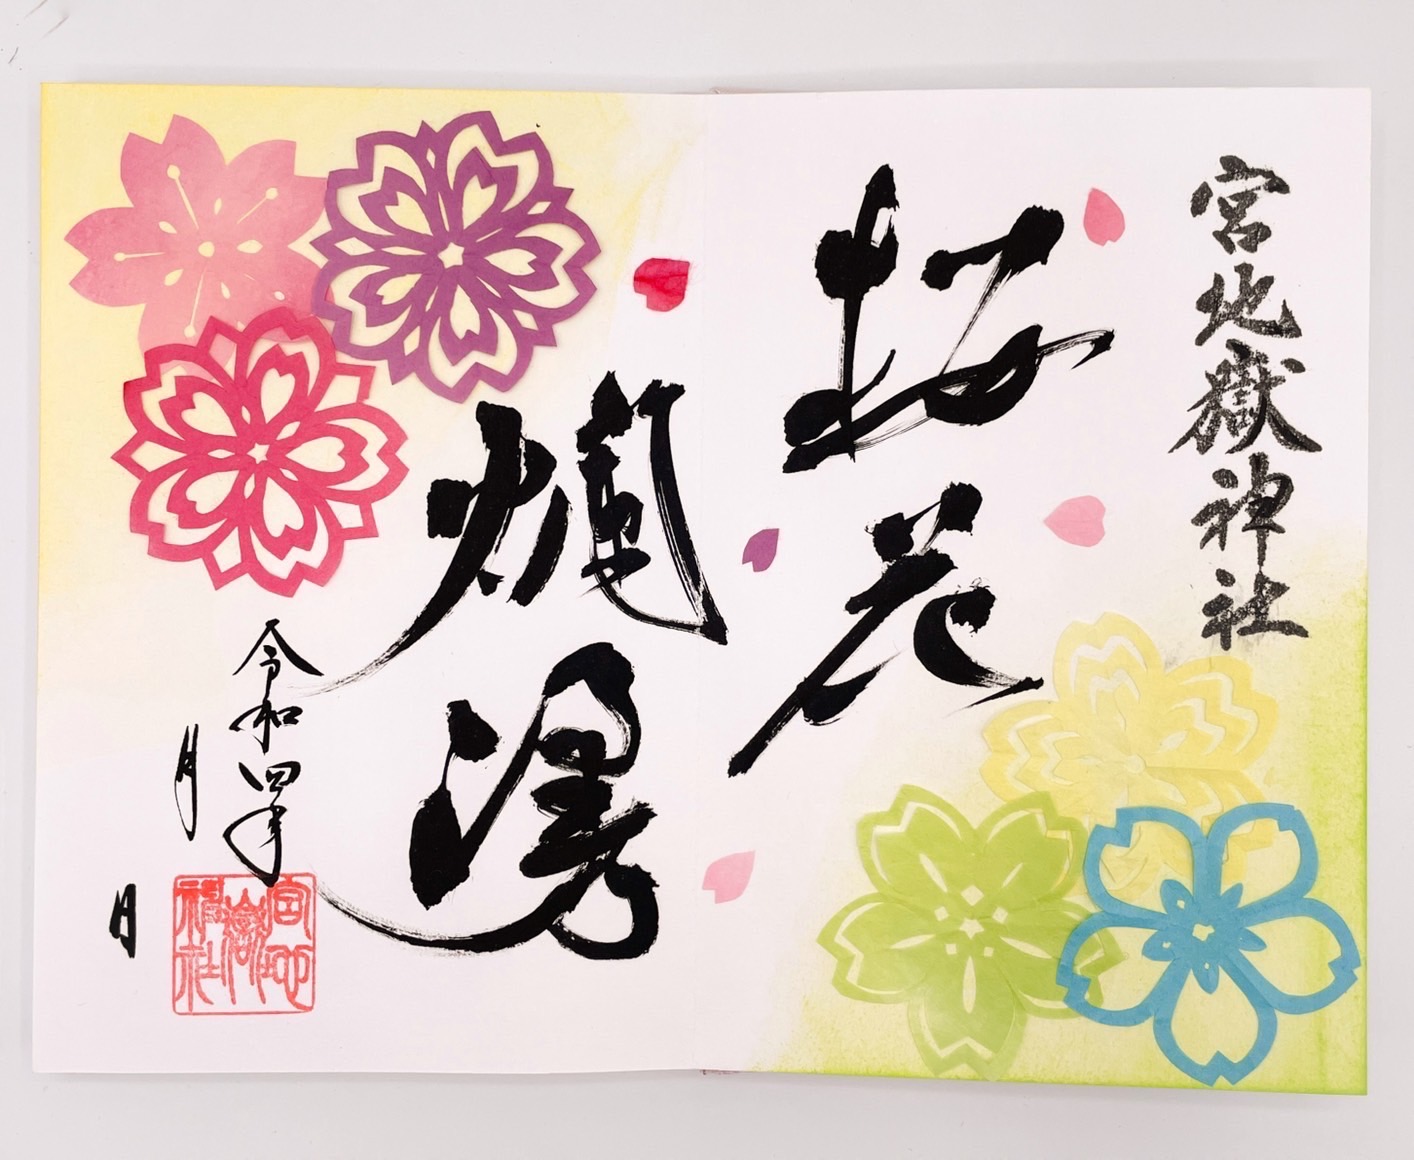 宮地嶽神社
桜花
爛漫
令和四年
月
日
宮地嶽神社